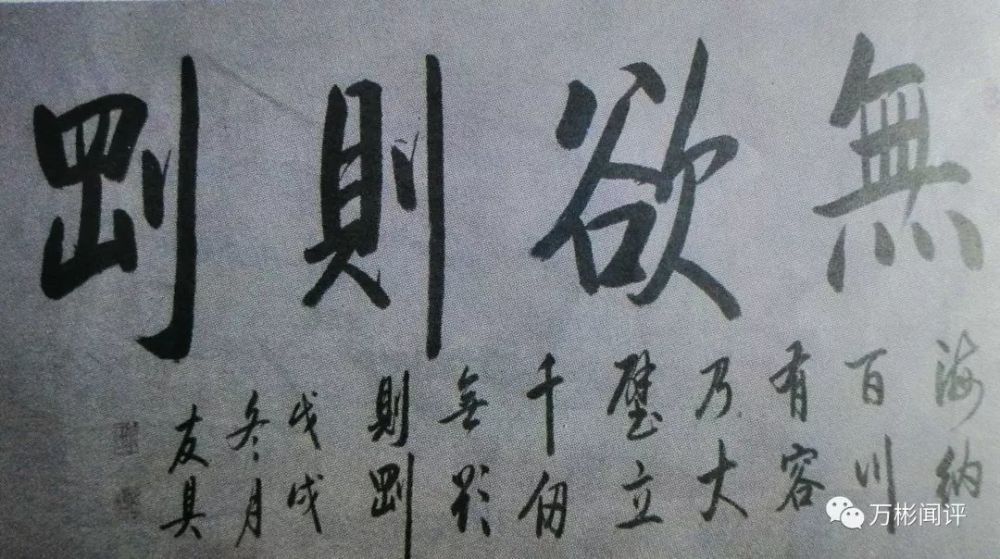 無欲則剛
海納
百川
有容
乃大
壁立
千仞
無欲
則剛
戊戌
冬月
友具
万彬闻评